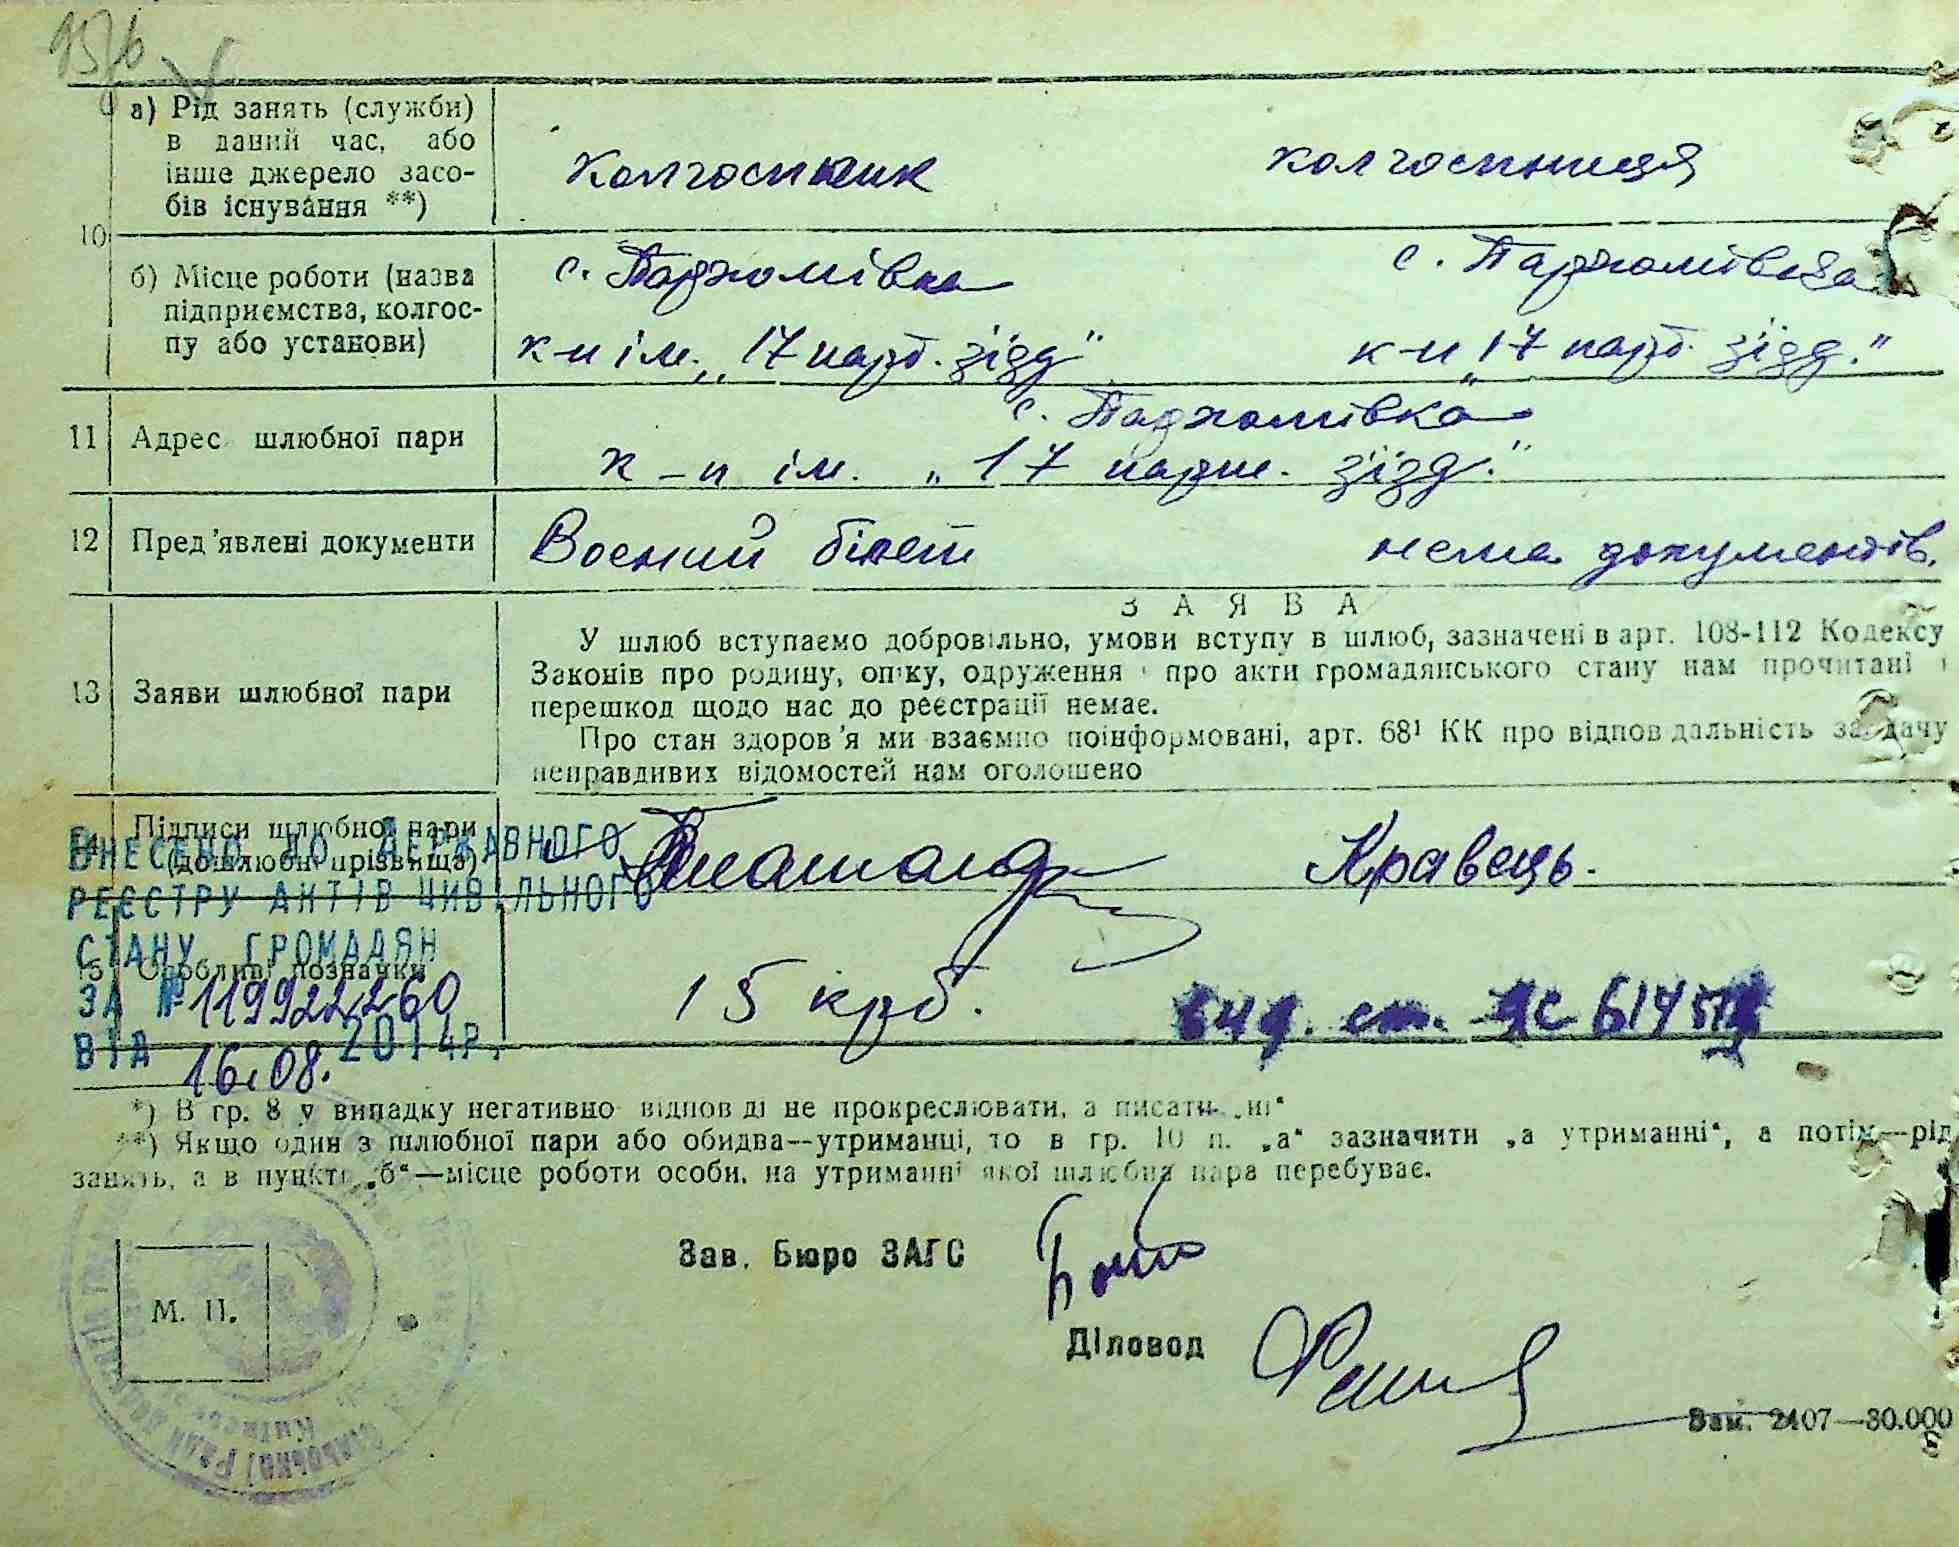 а) Рід занять (служби)
в даний час, або
інше джерело засо-
бів існування **)
колгоспник
колгоспниця
10
б) Місце роботи (назва
підприємства, колгос-
пу або установи)
с. Пархомівка
с. Пархомівка
к-п ім. „17 парт. зїзд"
к-п „17 парт. зїзд."
11 Адрес шлюбної пари
с. Пархомівка
к-п ім. „17 парт. зїзд."
12 Пред'явлені документи
Воєний білет
нема документів.
13 Заяви шлюбної пари
ЗАЯВА
У шлюб вступаємо добровільно, умови вступу в шлюб, зазначені в арт. 108-112 Кодексу
Законів про родину, опіку, одруження і про акти громадянського стану нам прочитані і
перешкод щодо нас до реєстрації немає.
Про стан здоров'я ми взаємно поінформовані, арт. 68¹ КК про відповідальність за дачу
неправдивих відомостей нам оголошено
14 Підписи шлюбної пари
(дошлюбні прізвища)
Кравець.
ВНЕСЕНО ДО ДЕРЖАВНОГО
РЕЄСТРУ АКТІВ ЦИВІЛЬНОГО
СТАНУ ГРОМАДЯН
ЗА № 119922260
ВІД 16.08. 2014р.
15 Особливі позначки
15 крб.
*) В гр. 8 у випадку негативної відповіді не прокреслювати, а писати „ні"
**) Якщо один з шлюбної пари або обидва—утриманці, то в гр. 10 п. „а" зазначити „а утриманні", а потім—рід
занять, а в пункті „б"—місце роботи особи, на утриманні якої шлюбна пара перебуває.
Зав. Бюро ЗАГС
М. П.
Діловод
Зам. 2407—30.000